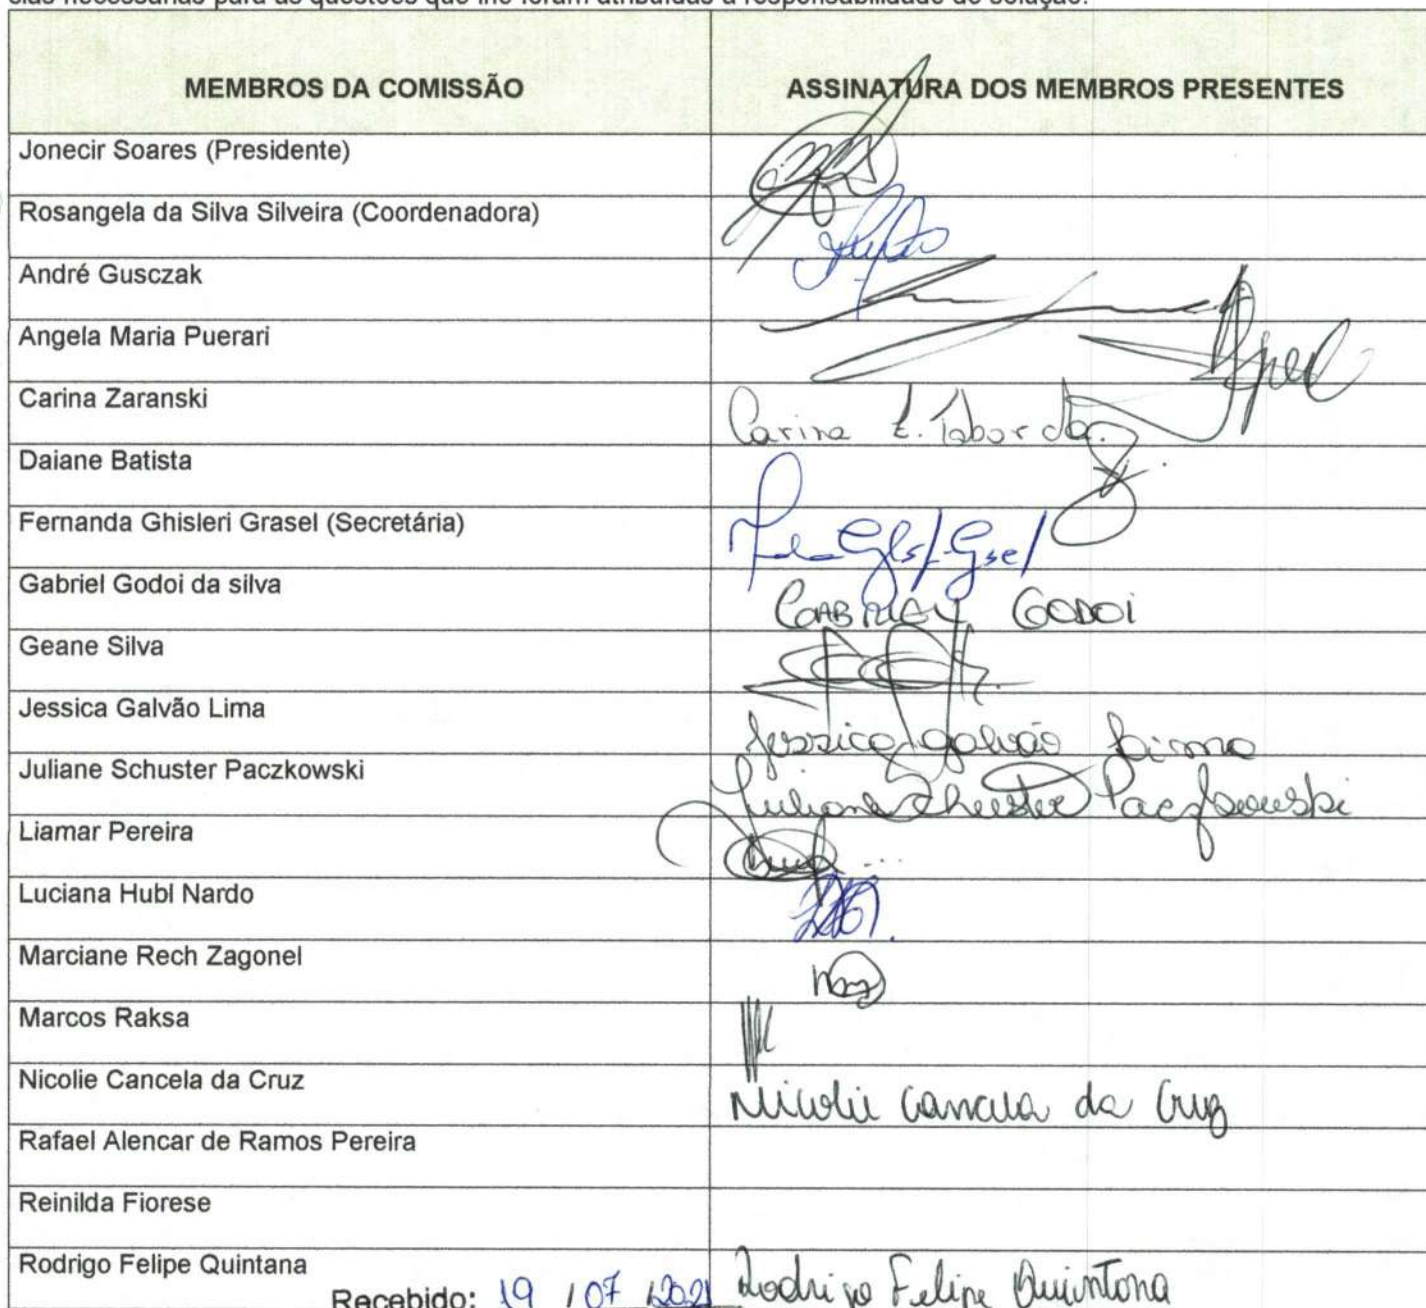 MEMBROS DA COMISSÃO ASSINATURA DOS MEMBROS PRESENTES
Jonecir Soares (Presidente)
Rosangela da Silva Silveira (Coordenadora)
André Gusczak
Angela Maria Puerari
Carina Zaranski Carina Z. Taborda.
Daiane Batista
Fernanda Ghisleri Grasel (Secretária)
Gabriel Godoi da silva GABRIEL GODOI
Geane Silva
Jessica Galvão Lima Jessica Galvão Lima
Juliane Schuster Paczkowski Juliane Schuster Paczkowski
Liamar Pereira
Luciana Hubl Nardo
Marciane Rech Zagonel
Marcos Raksa
Nicolie Cancela da Cruz Nicolie Cancela da Cruz
Rafael Alencar de Ramos Pereira
Reinilda Fiorese
Rodrigo Felipe Quintana Rodrigo Felipe Quintana
Recebido: 19 / 07 / 2021